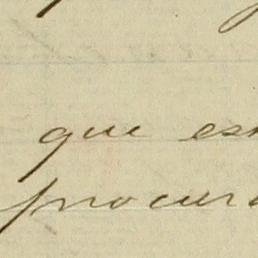 que es
procur